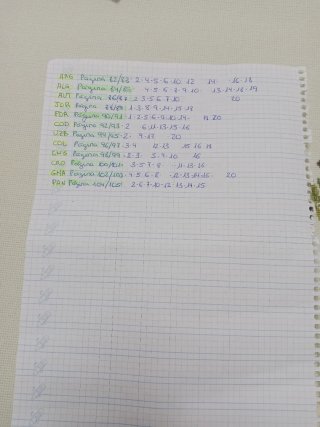 ARG Pagina 82/83 2-4-5-6-10 12 14 16-18
ALG Pargina 84/85 4-5-6-7-9-10- 13-14-18-19
AUT Pagina 86/87 2-3-5-6-7-10 20
JOR Pagina 88/89 1-3-8-9-14-15-18
POR Pagina 90/91 1-2-5-6-9-10-14- 20
COD Pagina 92/93-2 6-11-13-15-16
UZB Pagina 94/95-2- 9-17 20
COL Pagina 96/97-3-4 12 13 15 16
ENG Pagina 98/99-2-3 5-9-10 16
CRO Pagina 100/101 3-5-7-8 11-13-16
GHA Pagina 102/103-4-5-6-8 -12-13-14-16- 20
PAN Pagina 104/105 2-6-7-10-12-13-14-15